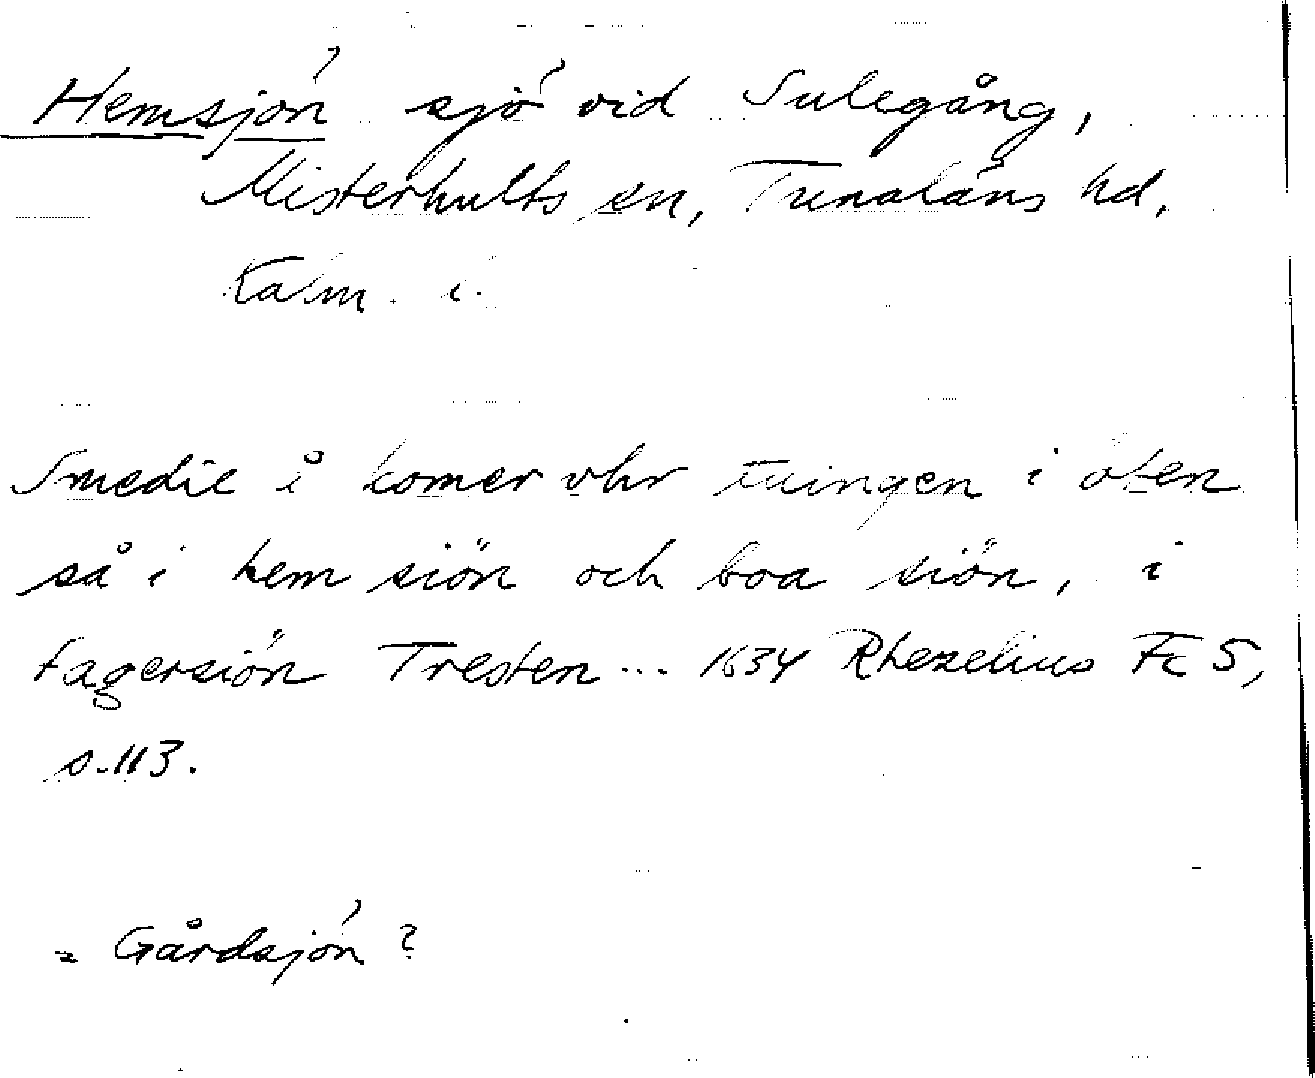 Hemsjön sjö vid Sulegång,
Misterhults sn, Tunaläns hd,
Kalm. l.
Smedie å komer vhr tuingen i öten
så i hem siön och boa siön, i
fagersiön Tresten ... 1634 Rhezelius Fc 5,
s. 113.
= Gårdsjön ?